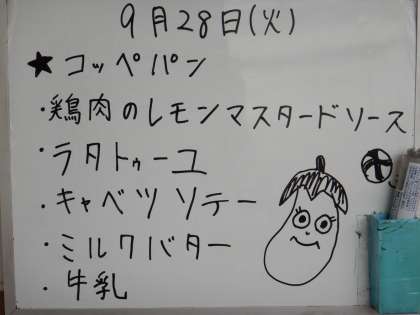 9月28日(火)
★コッペパン
・鶏肉のレモンマスタードソース
・ラタトゥーユ
・キャベツソテー
・ミルクバター
・牛乳